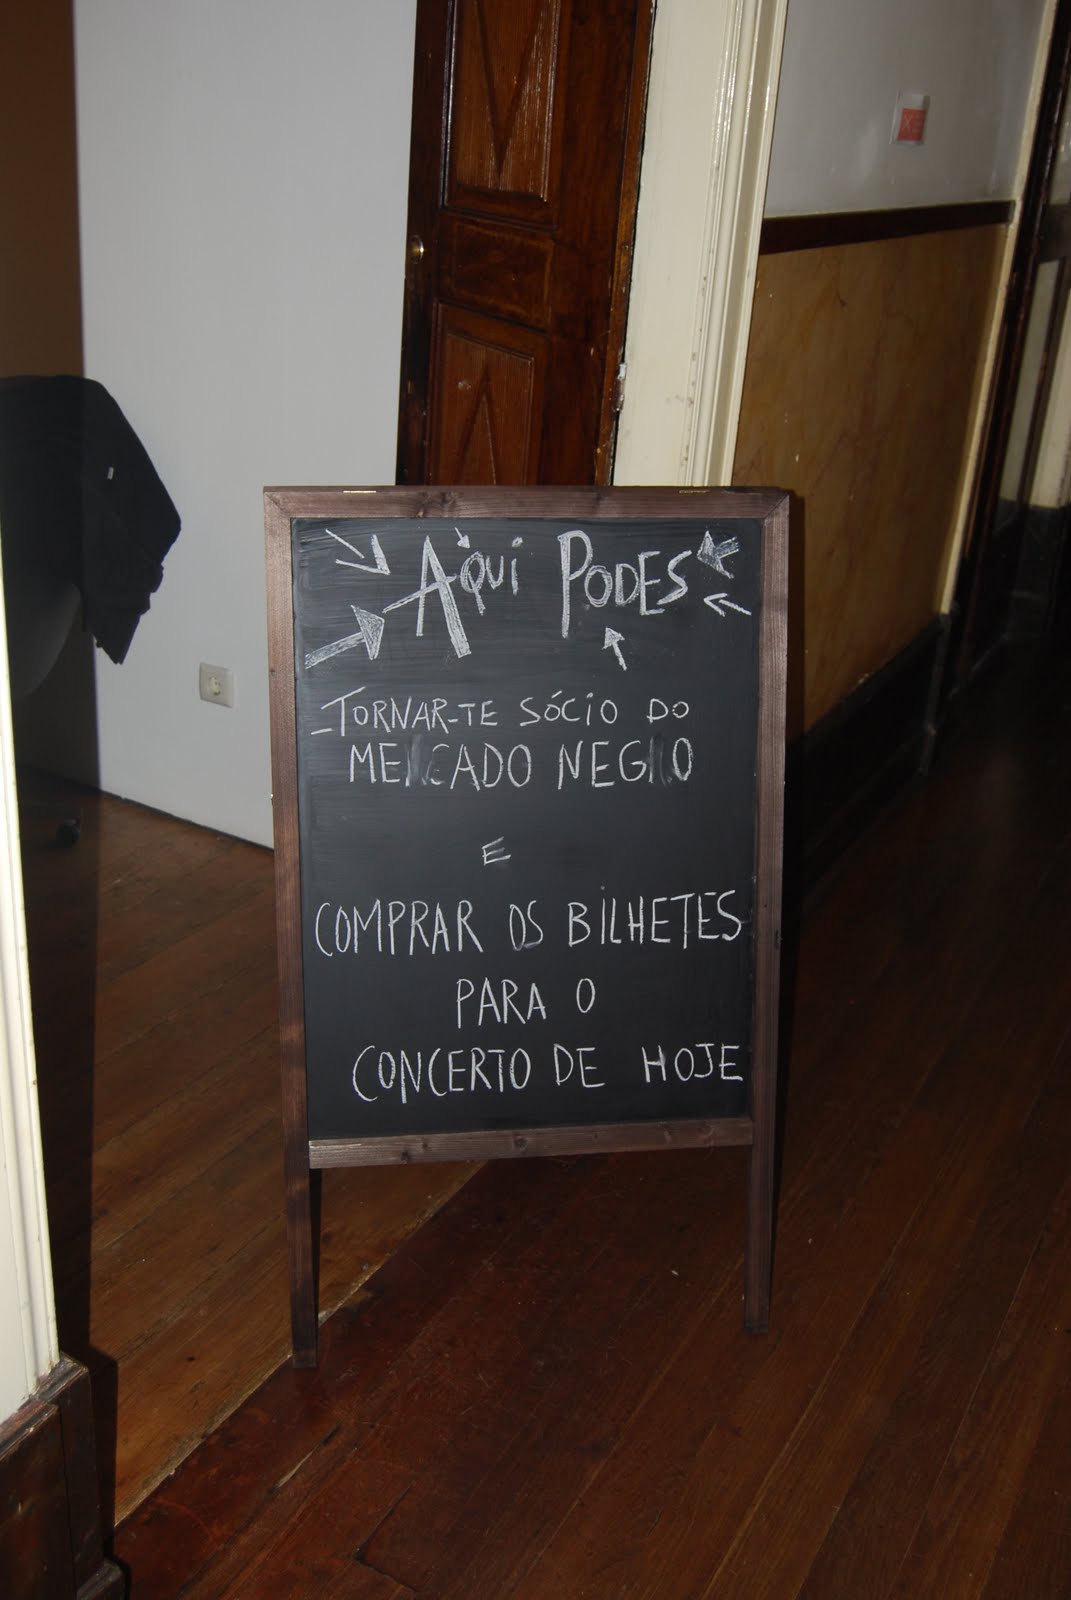 AQUI PODES
- TORNAR-TE SÓCIO DO
MERCADO NEGRO
E
COMPRAR OS BILHETES
PARA O
CONCERTO DE HOJE